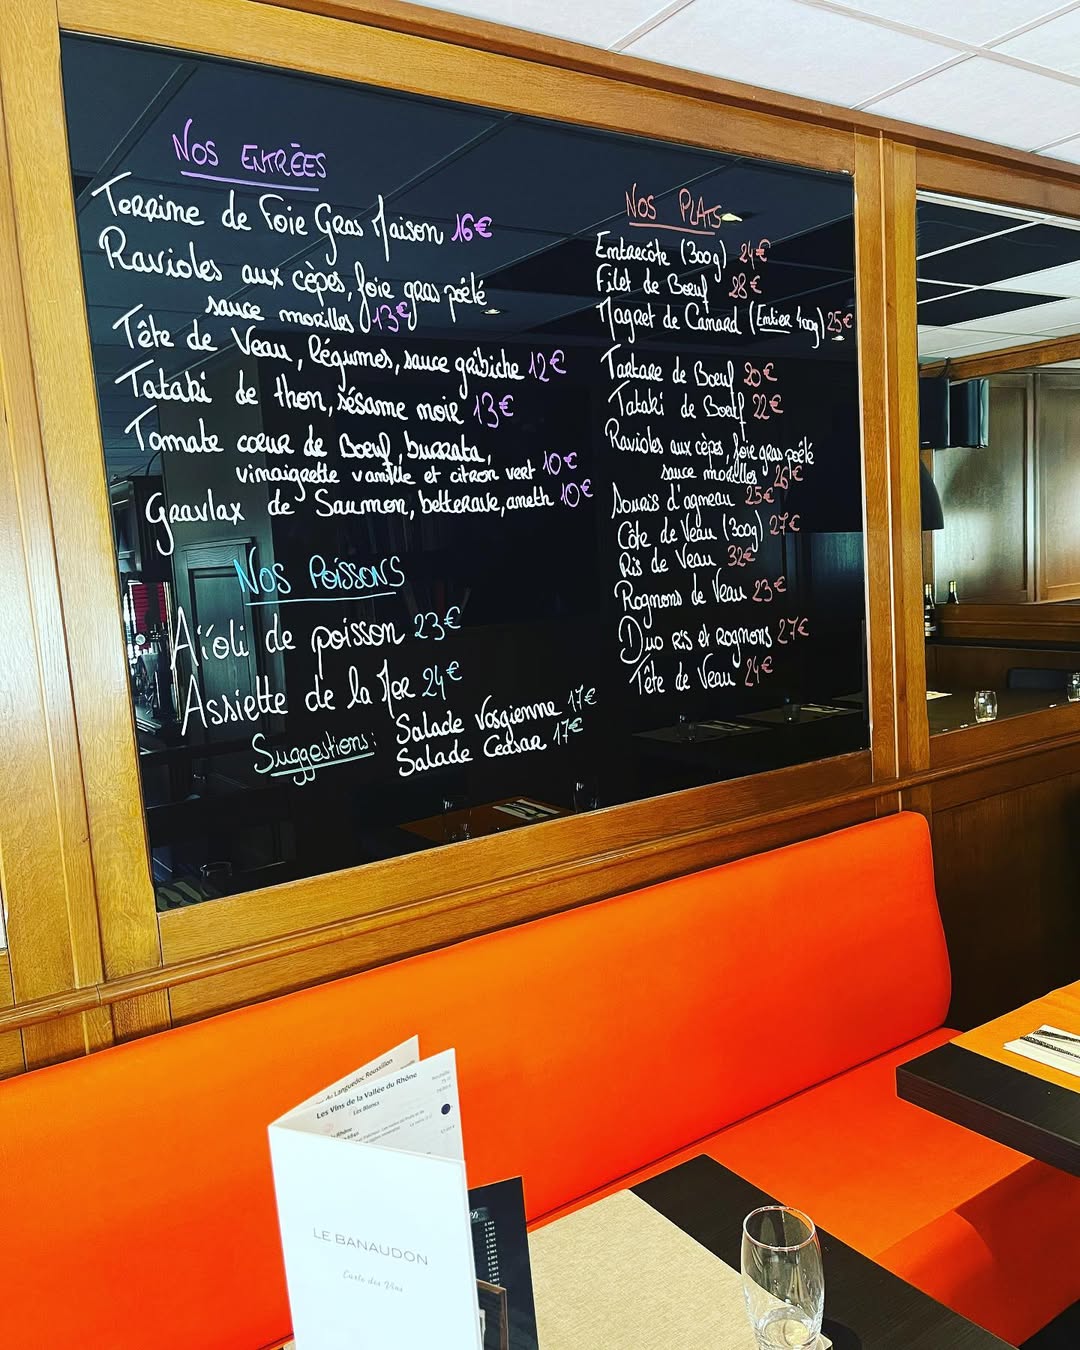 NOS ENTRÉES
Terrine de Foie Gras Maison 16€
Ravioles aux cèpes, foie gras poêlé
sauce morilles 13€
Tête de Veau, légumes, sauce gribiche 12€
Tataki de thon, sésame noir 13€
Tomate cœur de Boeuf, burrata,
vinaigrette vanille et citron vert 10€
Gravlax de Saumon, betterave, aneth 10€
NOS POISSONS
Aïoli de poisson 23€
Assiette de la Mer 24€
Suggestions: Salade Vosgienne 17€
Salade Ceasar 17€
NOS PLATS
Entrecôte (300g) 24€
Filet de Boeuf 28€
Magret de Canard (Entier 400g) 25€
Tartare de Boeuf 20€
Tataki de Boeuf 22€
Ravioles aux cèpes, foie gras poêlé
sauce morilles 26€
Souris d'agneau 25€
Côte de Veau (300g) 27€
Ris de Veau 32€
Rognons de Veau 23€
Duo Ris et Rognons 27€
Tête de Veau 24€
Languedoc Roussillon
Les Vins de la Vallée du Rhône
Les Blancs
LE BANAUDON
Carte des Vins